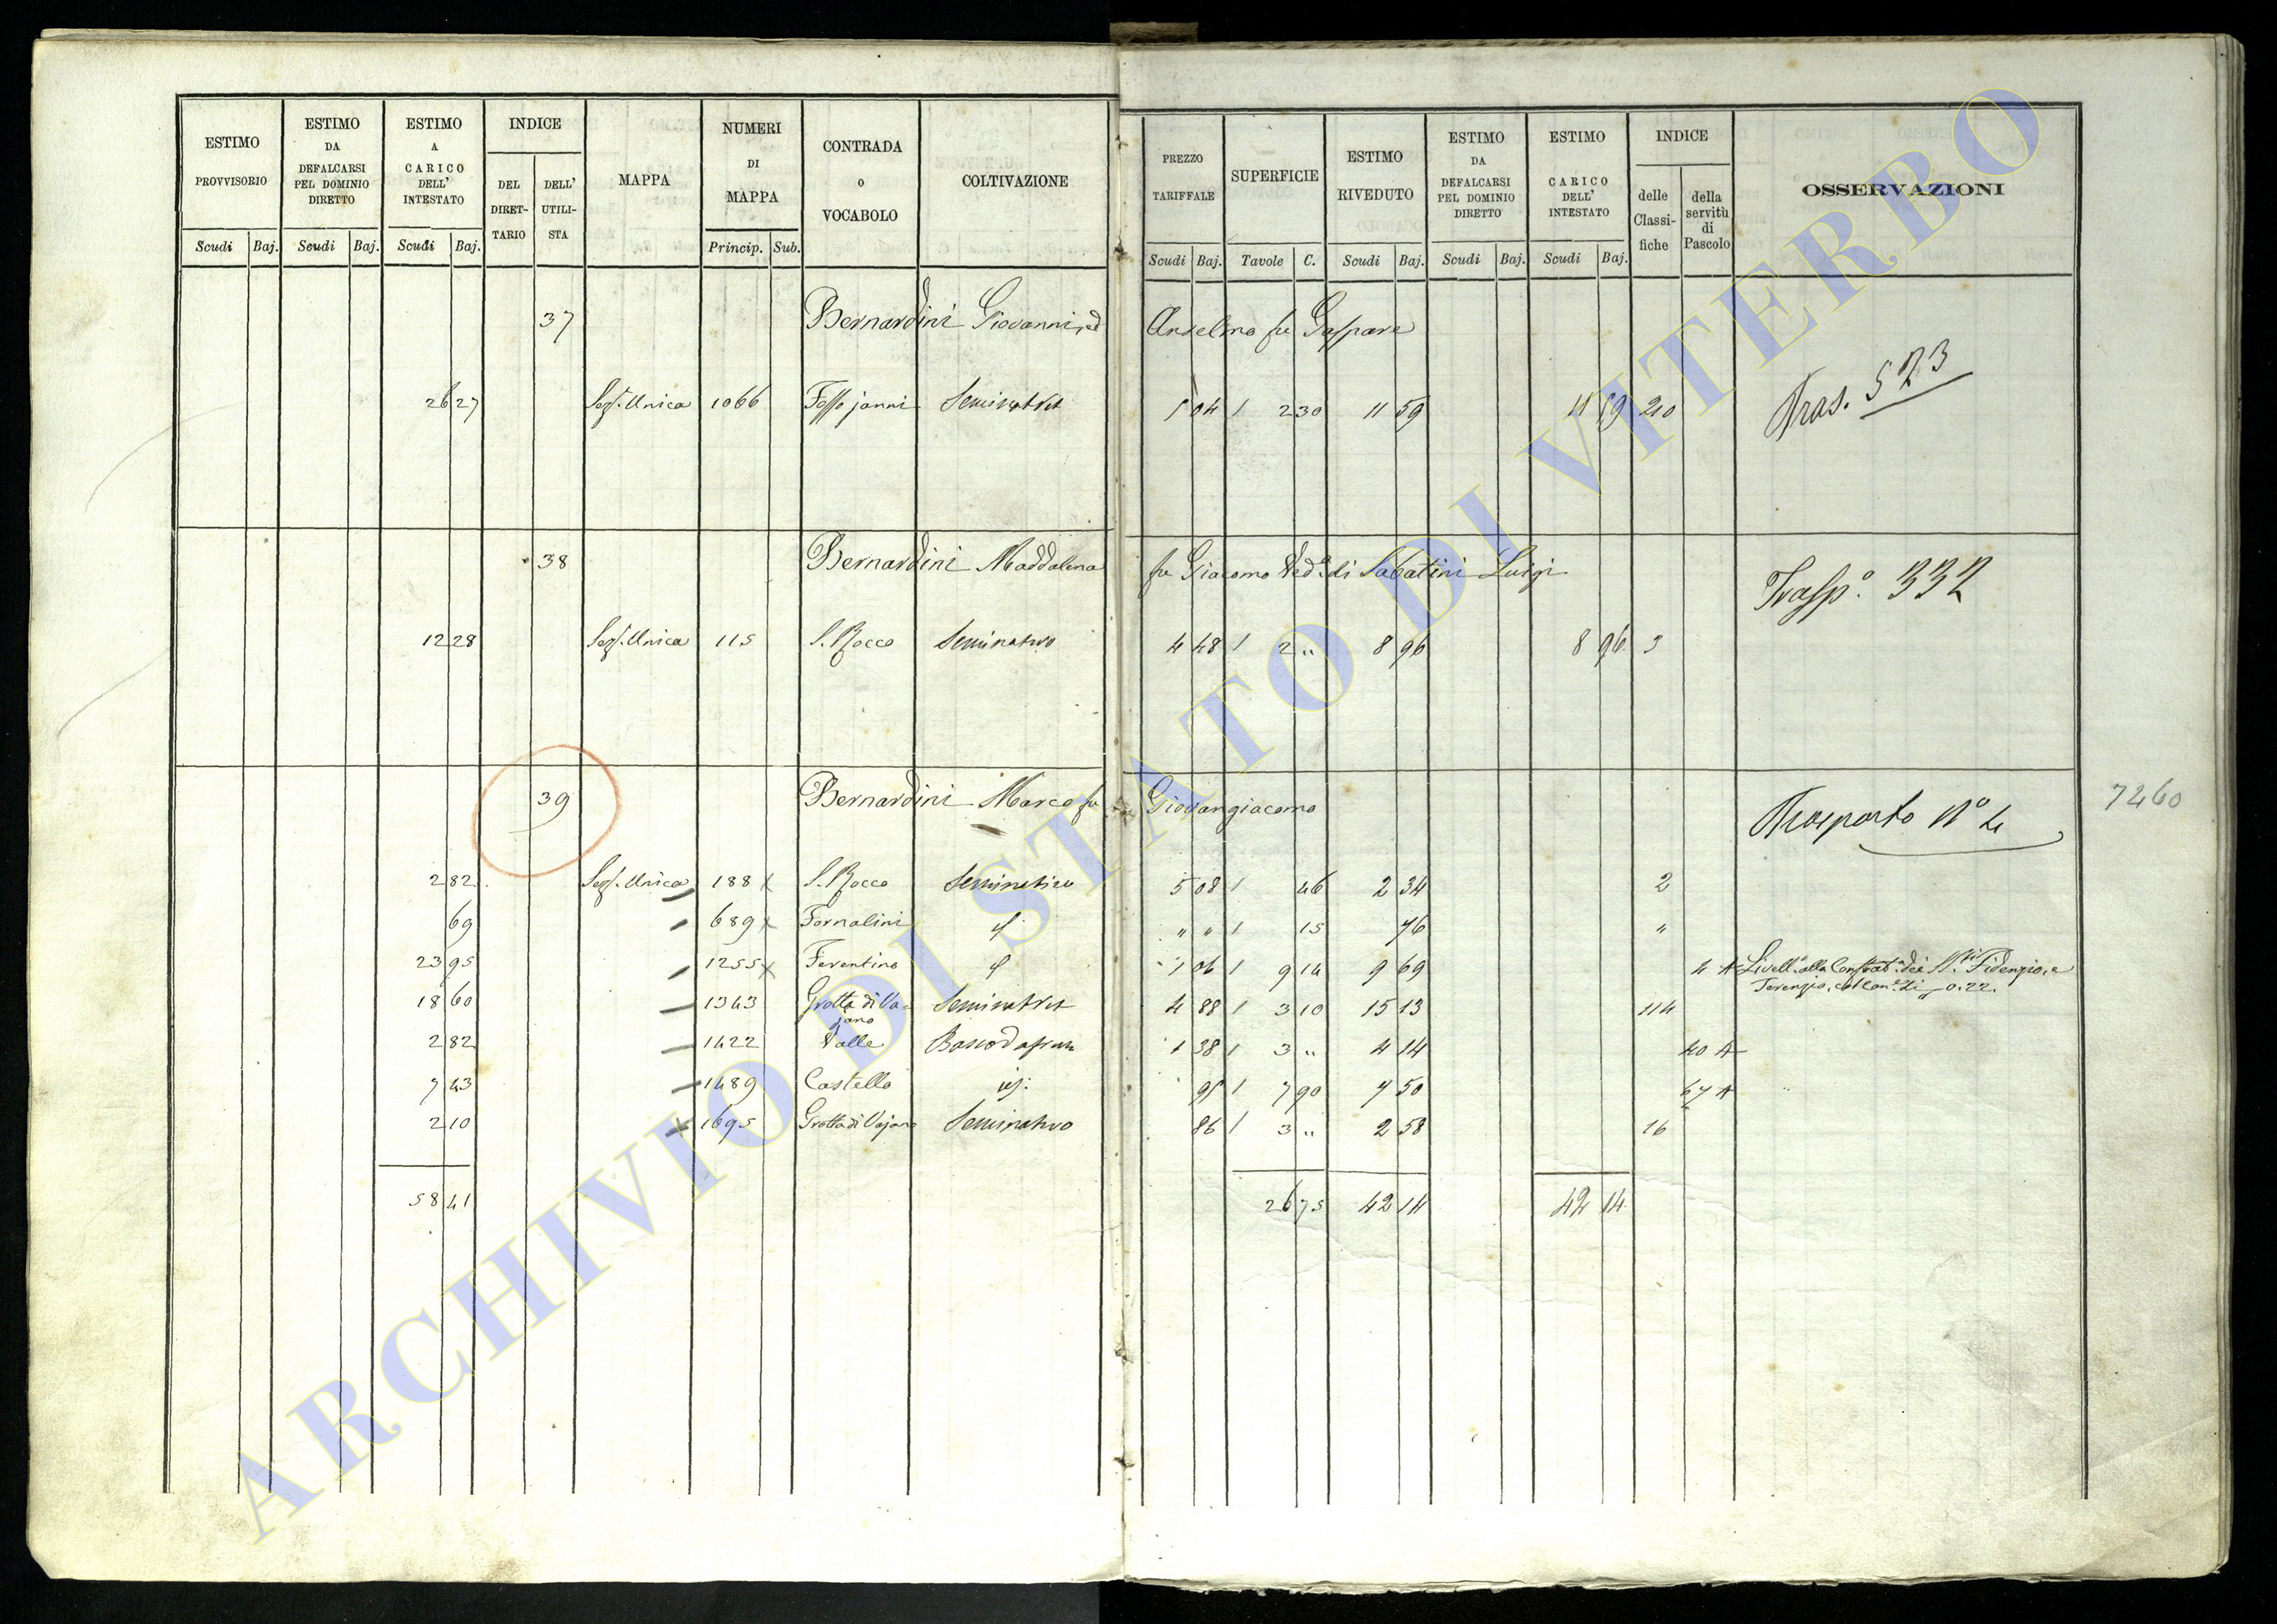 ESTIMO PROVVISORIO Scudi Baj.
ESTIMO DA DEFALCARSI PEL DOMINIO DIRETTO Scudi Baj.
ESTIMO A CARICO DELL' INTESTATO Scudi Baj.
INDICE DEL DIRET-TARIO DELL' UTILI-STA
MAPPA
NUMERI DI MAPPA Princip. Sub.
CONTRADA o VOCABOLO
COLTIVAZIONE
PREZZO TARIFFALE Scudi Baj.
SUPERFICIE Tavole C.
ESTIMO RIVEDUTO Scudi Baj.
ESTIMO DA DEFALCARSI PEL DOMINIO DIRETTO Scudi Baj.
ESTIMO A CARICO DELL' INTESTATO Scudi Baj.
INDICE delle Classi-fiche della servitù di Pascolo
OSSERVAZIONI
37 Bernardini Giovanni, ed Anselmo fu Gaspare
26 27 Sez. Unica 1066 Fosso janni Seminat Vit 5 04 / 2 30 11 59 11 59 210 Tras. 573
38 Bernardini Maddalena fu Giacomo Ved.a di Sabatini Luigi Trasp.o 332
12 28 Sez. Unica 115 S. Rocco Seminativo 4 48 / 2 " 8 96 8 96 3
39 Bernardini Marco fu Giovangiacomo Trasporto N° 4 7260
2 82 Sez. Unica 188 x S. Rocco Seminativo 5 08 / 46 2 34 2
69 689 x Fornalini " " / 15 76 "
23 95 1255 x Ferentino 1 06 / 9 14 9 69 4 A Livell.o alla Confrat.a dei S.ti Fidenzio, e
Terenzio, col Can.e di 0.22.
18 60 1343 Grotta di Va=jano Seminat Vit 4 88 / 3 10 15 13 114
2 82 1422 Valle 1 38 / 3 " 4 14 40 A
7 43 1489 Castello id: 95 / 7 90 7 50 67 A
2 10 x 1695 Grotta di Vajano Seminativo 86 / 3 " 2 58 16
58 41 26 75 42 14 42 14
ARCHIVIO DI STATO DI VITERBO